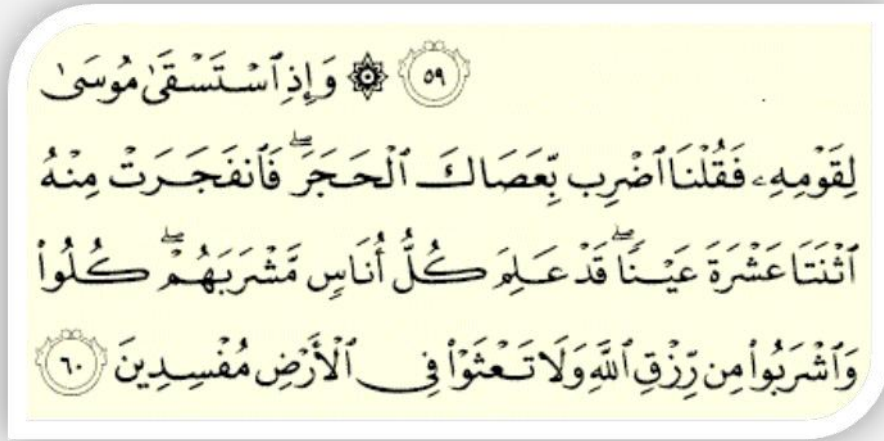 ٥٩ ۞ وَإِذِ ٱسْتَسْقَىٰ مُوسَىٰ
لِقَوْمِهِۦ فَقُلْنَا ٱضْرِب بِّعَصَاكَ ٱلْحَجَرَ ۖ فَٱنفَجَرَتْ مِنْهُ
ٱثْنَتَا عَشْرَةَ عَيْنًا ۖ قَدْ عَلِمَ كُلُّ أُنَاسٍ مَّشْرَبَهُمْ ۖ كُلُوا۟
وَٱشْرَبُوا۟ مِن رِّزْقِ ٱللَّهِ وَلَا تَعْثَوْا۟ فِى ٱلْأَرْضِ مُفْسِدِينَ ٦٠